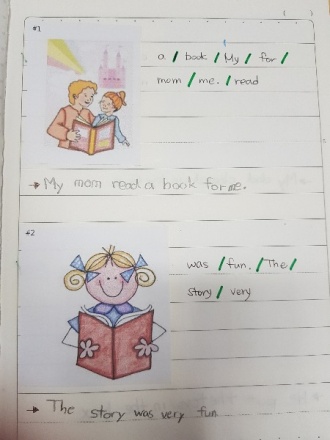 #1
a / book / My / for /
mom / me. / read
→ My mom read a book for me.
#2
was / fun. / The /
story / very
→ The story was very fun